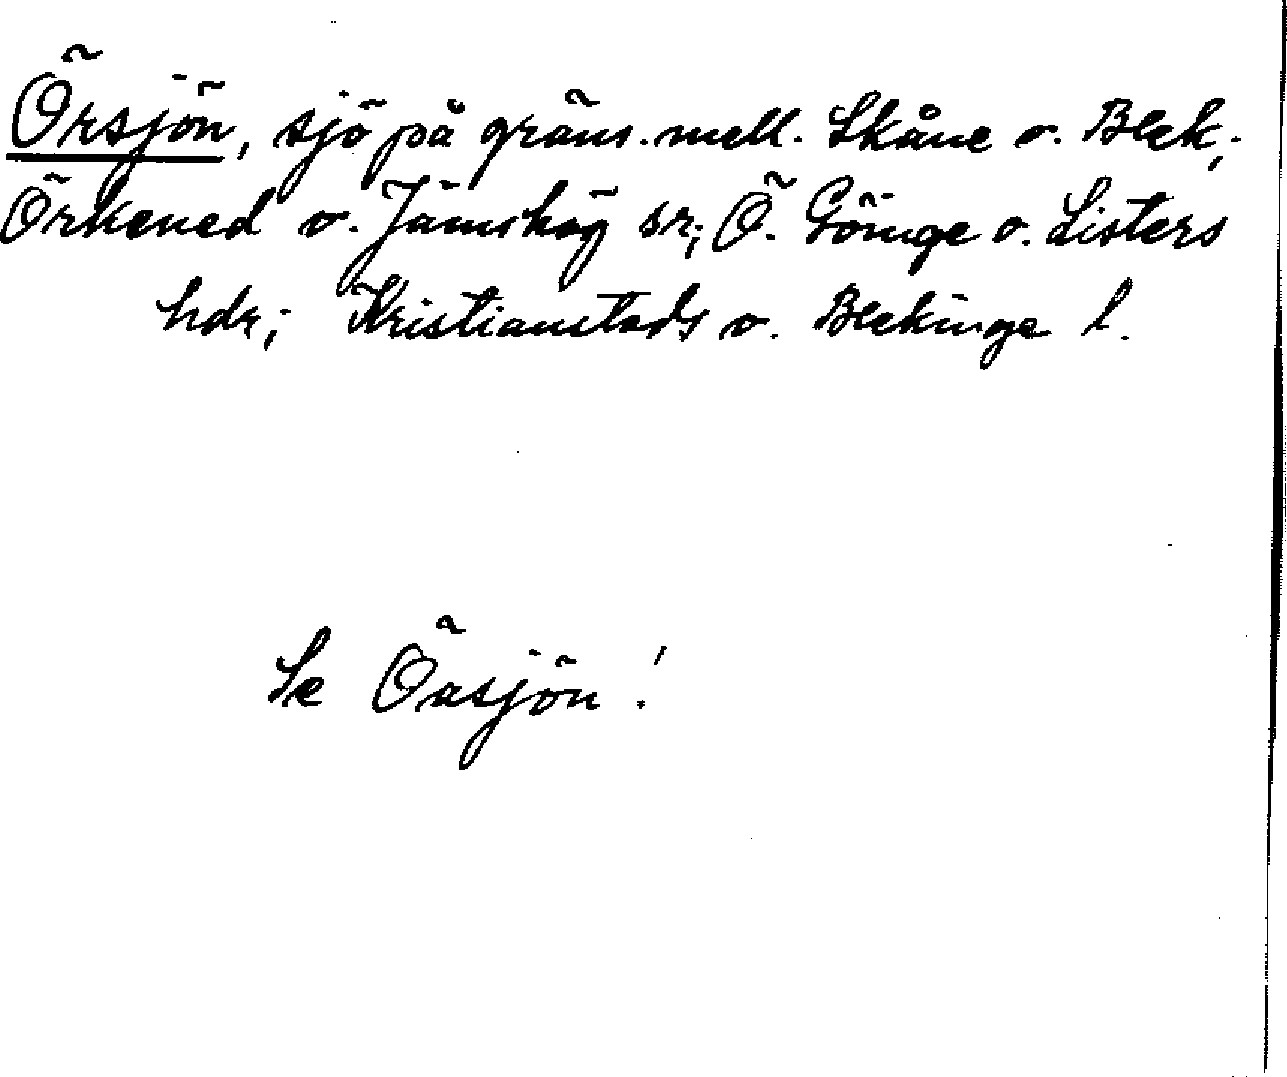 Örsjön, sjö på gräns. mell. Skåne o. Blek.;
Örkened o. Jämshög sr; Ö. Göinge o. Listers
hdr; Kristianstads o. Blekinge l.
Se Öasjön!